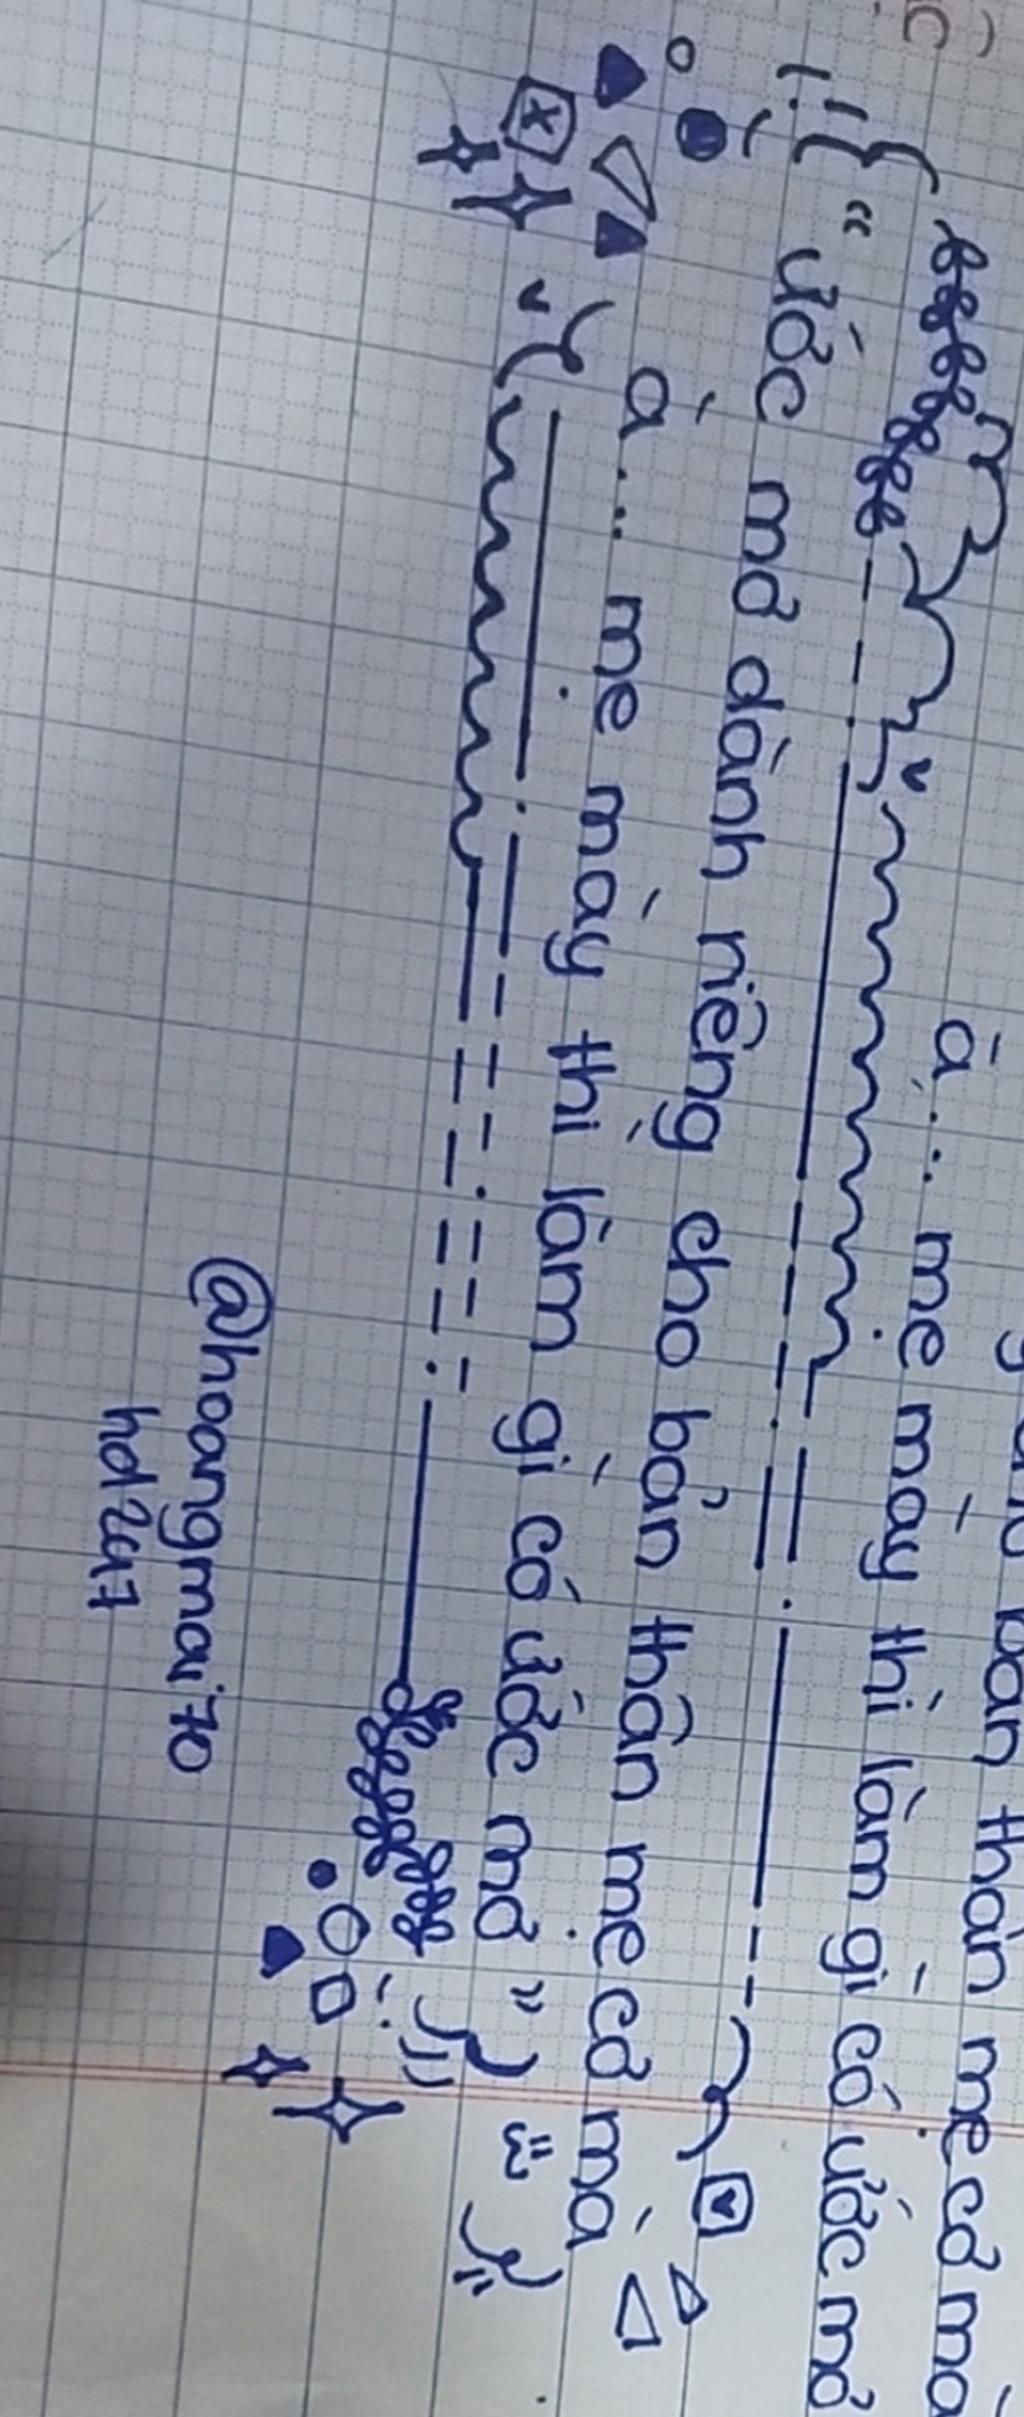 bản thân mẹ cơ mà
à... mẹ mày thì làm gì có ước mơ
"ước mơ dành riêng cho bản thân mẹ cơ mà
à... mẹ mày thì làm gì có ước mơ"
@hoangmai70